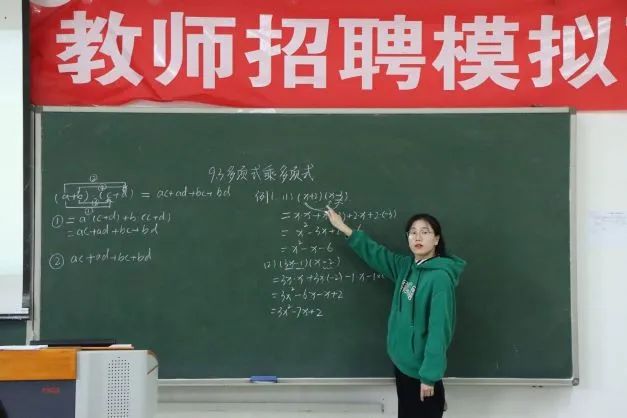 教师招聘模拟
9.3多项式乘多项式
(a+b)(c+d) = ac+ad+bc+bd
① = a(c+d)+b(c+d)
= ac+ad+bc+bd
② ac+ad+bc+bd
例1. (1) (x+2)(x-3)
= x·x+x )+2·x+2·(-3)
= x²-3x+ 6
= x²-x-6
(2) (3x-1)(x-2)
= 3x·x+3x(-2)-1·x-1×
= 3x²-6x-x+2
= 3x²-7x+2